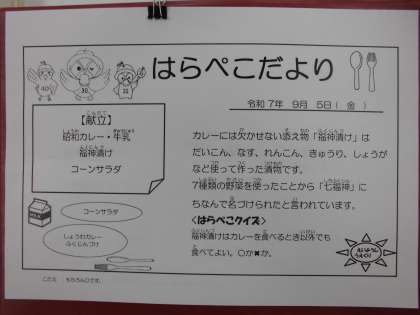 はらぺこだより
令和7年 9月 5日(金)
【献立】
昭和カレー・牛乳
福神漬け
コーンサラダ
カレーには欠かせない添え物「福神漬け」は
だいこん、なす、れんこん、きゅうり、しょうが
など使って作った漬物です。
7種類の野菜を使ったことから「七福神」に
ちなんで名づけられたと言われています。
<はらぺこクイズ>
福神漬けはカレーを食べるとき以外でも
食べてよい。〇か✖か。
コーンサラダ
しょうわカレー
ふくじんづけ
こたえ もちろん〇です。